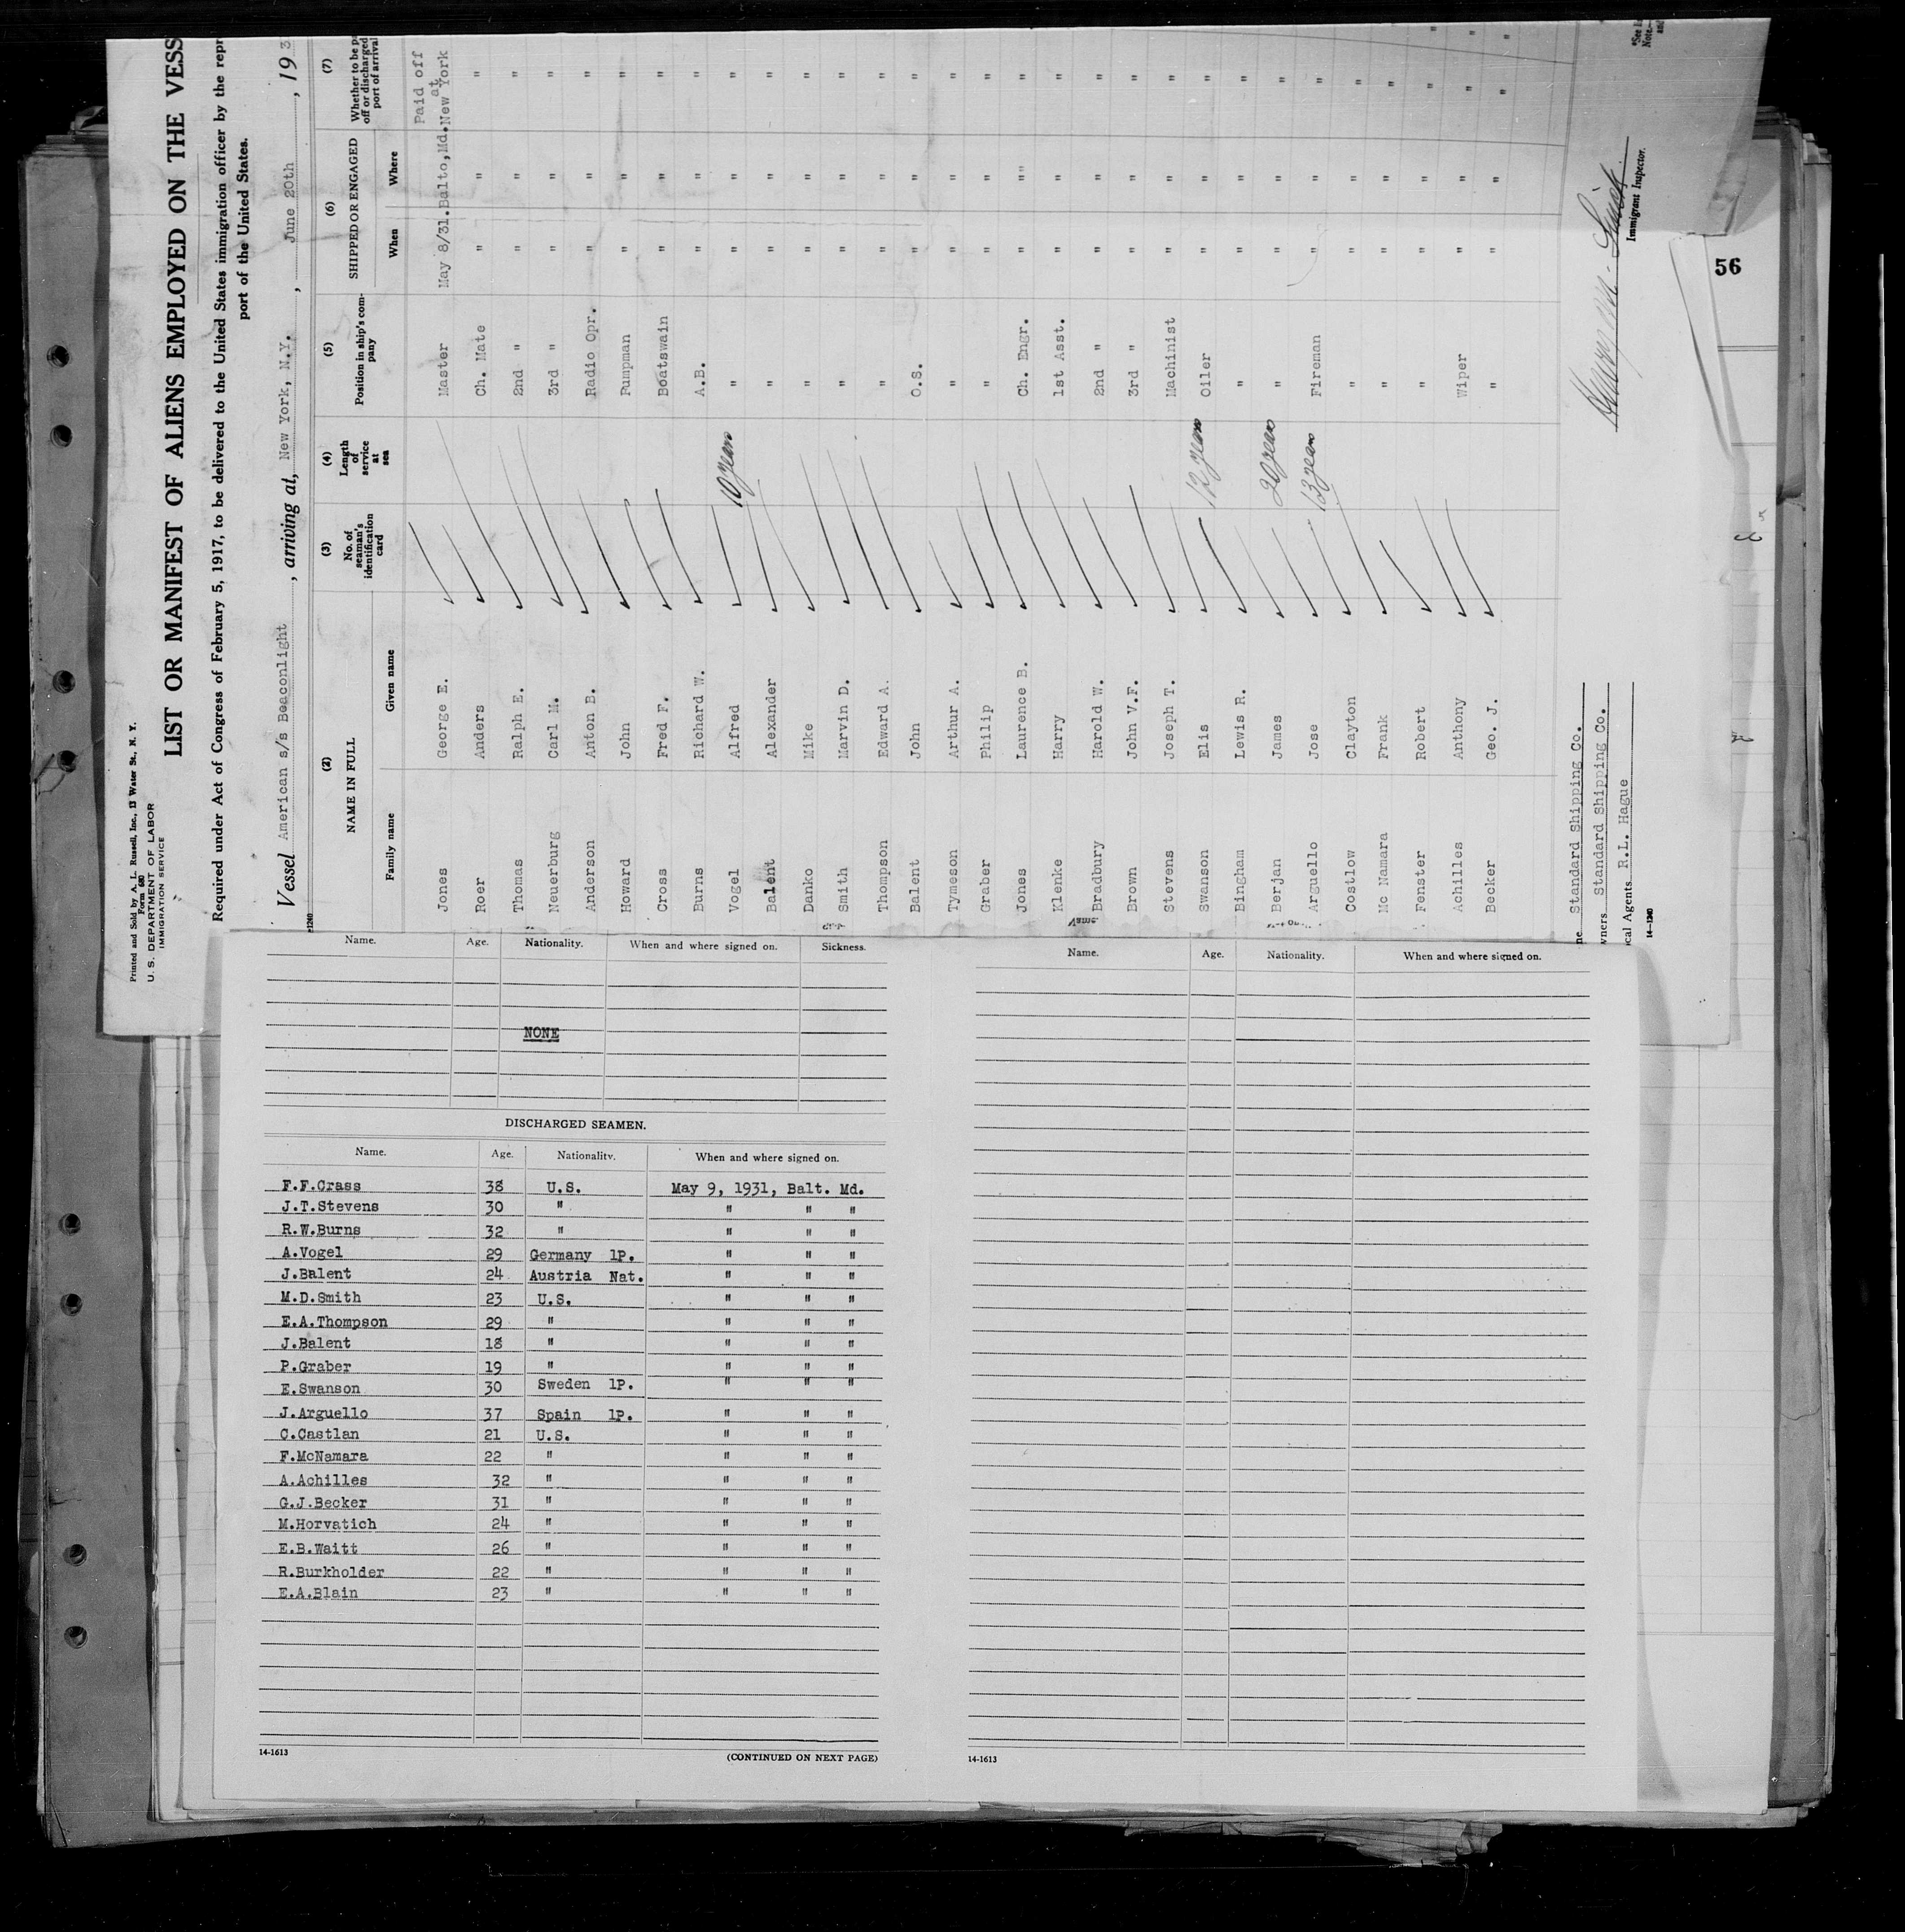 Printed and Sold by A. L. Russell, Inc., 13 Water St., N. Y.
Form 680
U. S. DEPARTMENT OF LABOR
IMMIGRATION SERVICE
LIST OR MANIFEST OF ALIENS EMPLOYED ON THE VESS
Required under Act of Congress of February 5, 1917, to be delivered to the United States immigration officer by the repr
port of the United States.
Vessel American s/s Beaconlight , arriving at, New York, N.Y. , June 20th , 193
(2) (3) (4) (5) (6) (7)
NAME IN FULL No. of seaman's identification card Length of service at sea Position in ship's company SHIPPED OR ENGAGED Whether to be pa off or discharged port of arrival
Family name Given name When Where
Jones George E. Master May 8/31. Balto, Md. Paid off at New York
Roer Anders Ch. Mate " " "
Thomas Ralph E. 2nd " " " "
Neuerburg Carl M. 3rd " " " "
Anderson Anton B. Radio Opr. " " "
Howard John Pumpman " " "
Cross Fred F. Boatswain " " "
Burns Richard W. A.B. " " "
Vogel Alfred 10 years " " " "
Balent Alexander " " " "
Danko Mike " " " "
Smith Marvin D. " " " "
Thompson Edward A. " " " "
Balent John O.S. " " "
Tymeson Arthur A. " " " "
Graber Philip " " " "
Jones Laurence B. Ch. Engr. " "" "
Klenke Harry 1st Asst. " " "
Bradbury Harold W. 2nd " " " "
Brown John V.F. 3rd " " " "
Stevens Joseph T. Machinist " " "
Swanson Elis 12 years Oiler " " "
Bingham Lewis R. " " " "
Berjan James 20 years " " " "
Arguello Jose 13 years Fireman " " "
Costlow Clayton " " " "
Mc Namara Frank " " " "
Fenster Robert " " " "
Achilles Anthony Wiper " " "
Becker Geo. J. " " " "
ne Standard Shipping Co.
wners Standard Shipping Co.
cal Agents R.L. Hague
14-1240
Immigrant Inspector.
56
Name. Age. Nationality. When and where signed on. Sickness.
NONE
DISCHARGED SEAMEN.
Name. Age. Nationality. When and where signed on.
F.F.Crass 38 U.S. May 9, 1931, Balt. Md.
J.T.Stevens 30 " " " "
R.W.Burns 32 " " " "
A.Vogel 29 Germany lP. " " "
J.Balent 24 Austria Nat. " " "
M.D.Smith 23 U.S. " " "
E.A.Thompson 29 " " " "
J.Balent 18 " " " "
P.Graber 19 " " " "
E.Swanson 30 Sweden lP. " " "
J.Arguello 37 Spain lP. " " "
C.Castlan 21 U.S. " " "
F.McNamara 22 " " " "
A.Achilles 32 " " " "
G.J.Becker 31 " " " "
M.Horvatich 24 " " " "
E.B.Waitt 26 " " " "
R.Burkholder 22 " " " "
E.A.Blain 23 " " " "
14-1613 (CONTINUED ON NEXT PAGE)
Name. Age. Nationality. When and where signed on.
14-1613